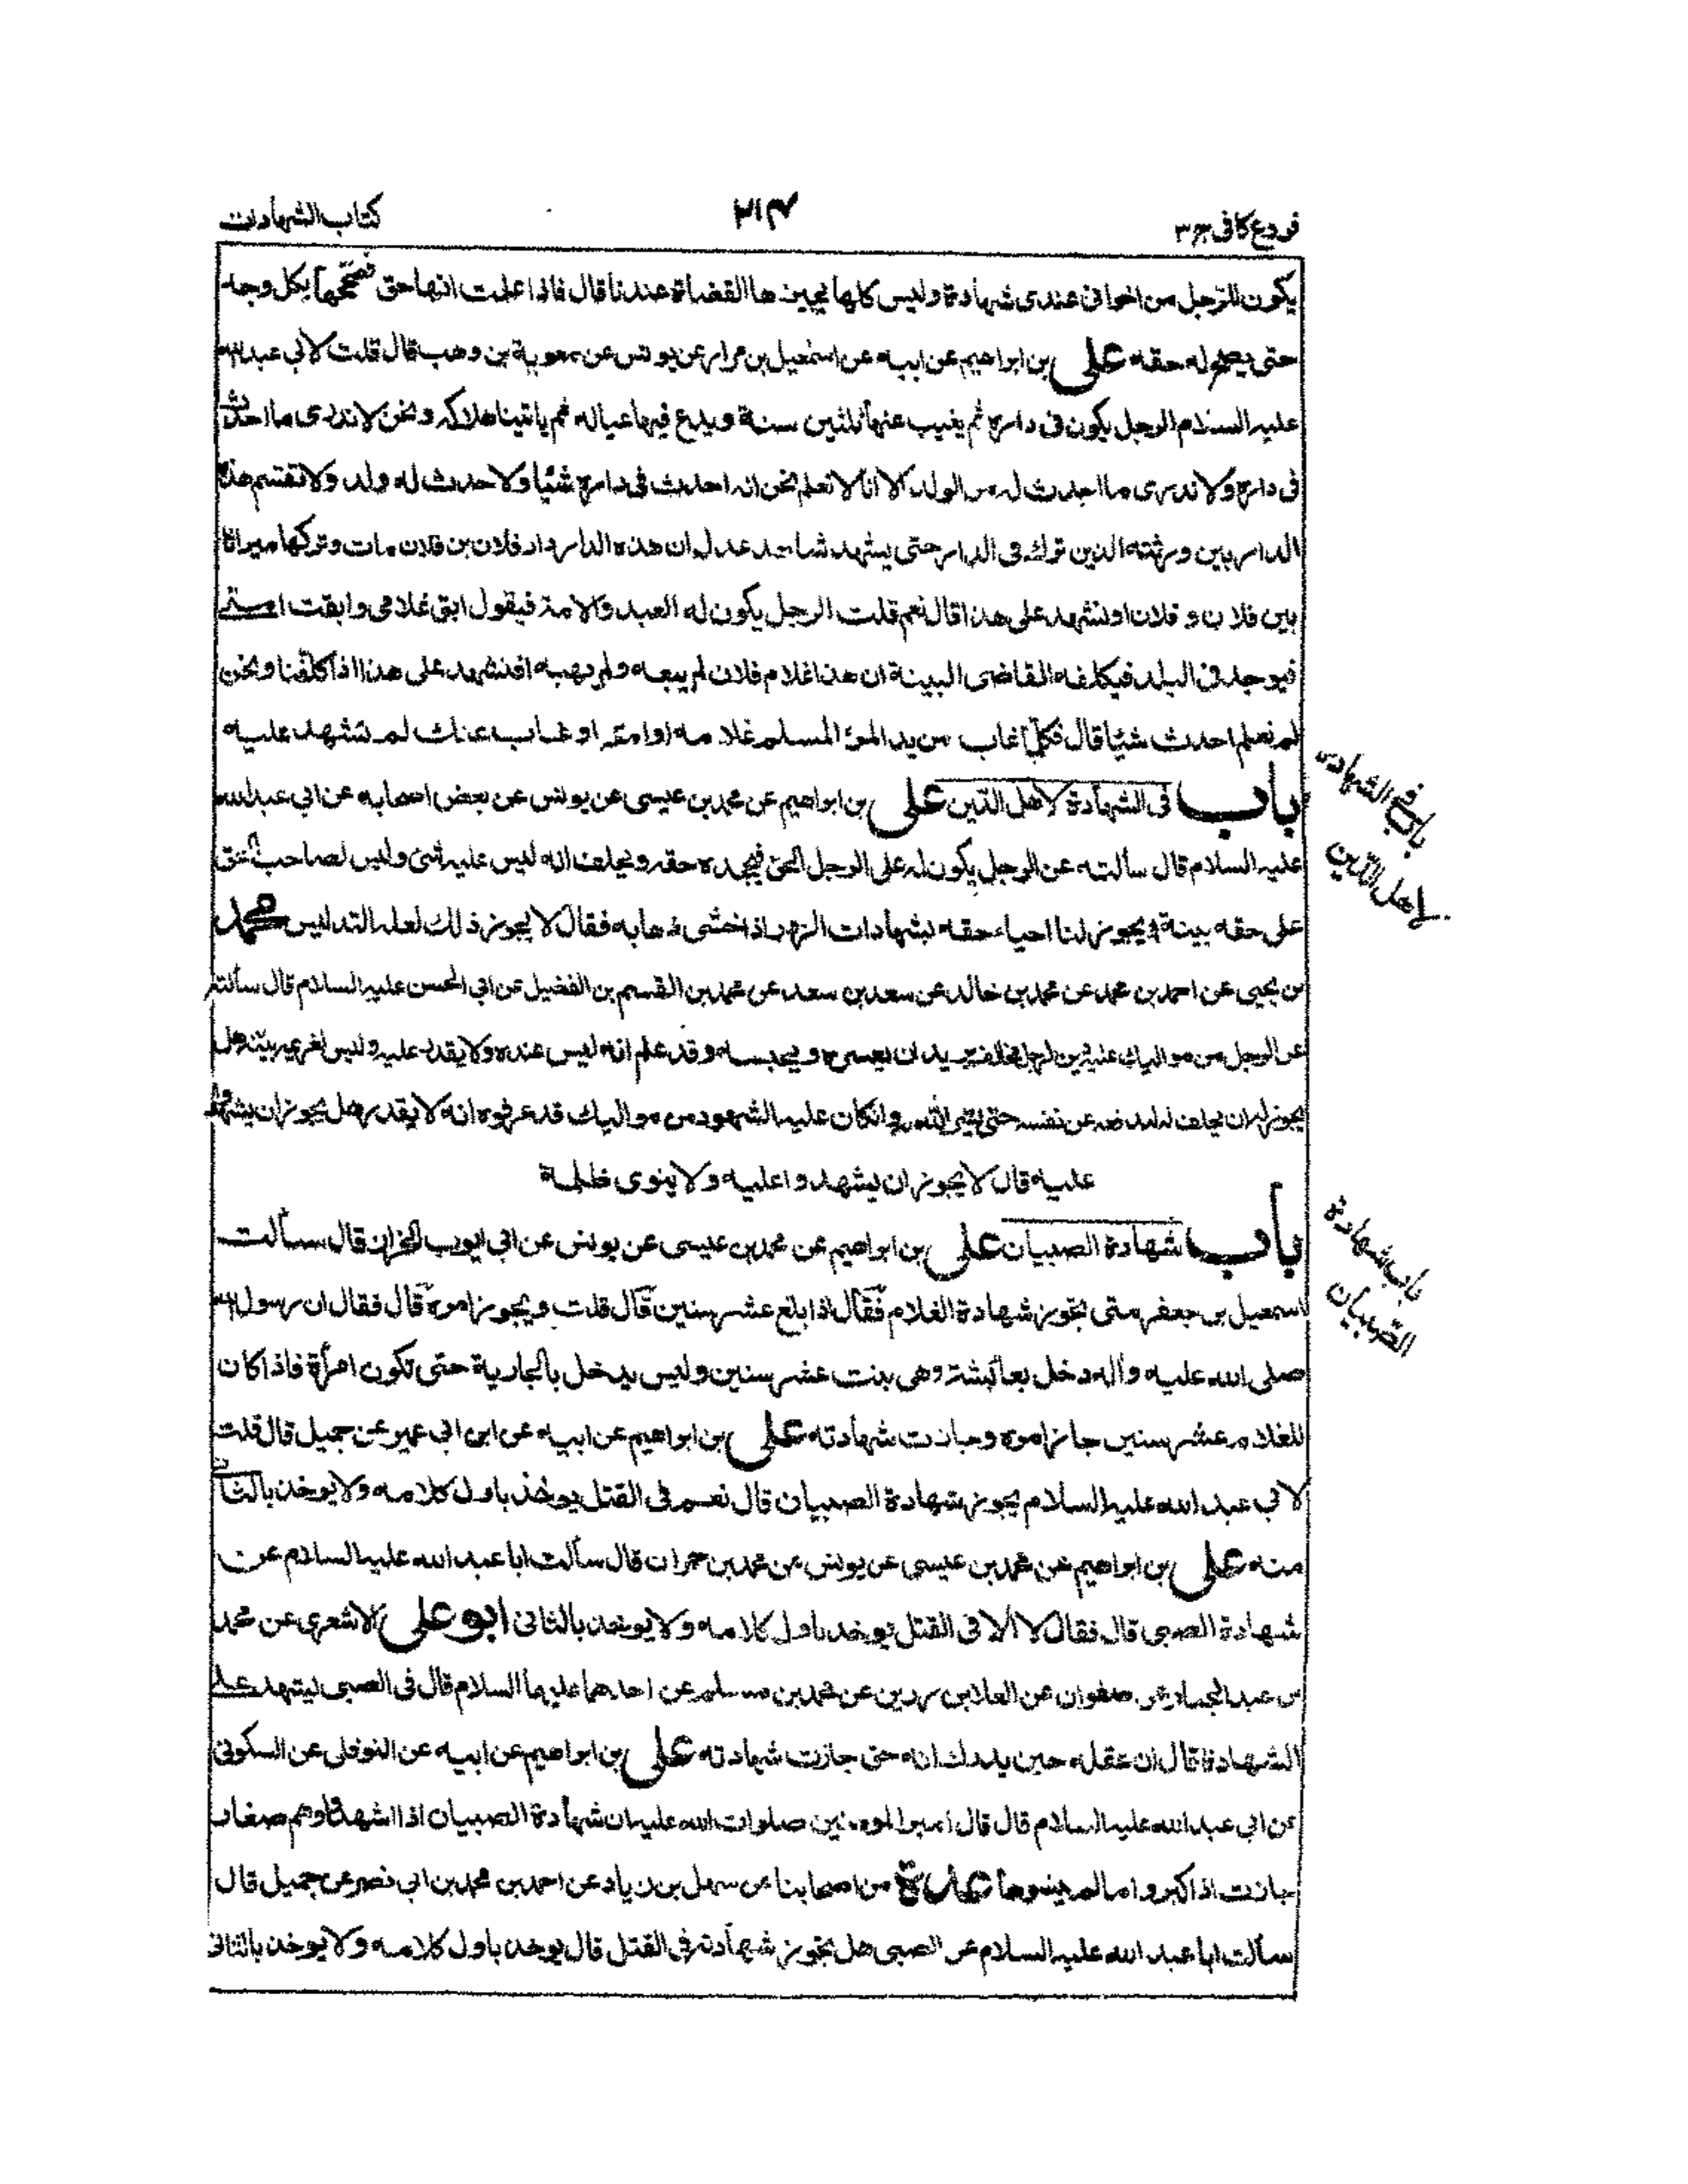 فروع كافى ج ٣
٢١٤
كتاب الشهادات
يكون للرجل من اخوانى عندى شهادة وليس كلها يجيزها القضاة عندنا قال فاذا علمت انها حق فصححها بكل وجه
حتى يصح له حقه على بن ابراهيم عن ابيه عن اسمعيل بن مرار عن يونس عن معوية بن وهب قال قلت لابى عبدالله
عليه السلام الرجل يكون فى داره ثم يغيب عنها ثلثين سنة ويدع فيها عياله ثم ياتينا هلاكه ونحن لا ندرى ما احدث
فى داره ولا ندرى ما احدث له من الولد الا انا لا نعلم نحن انه احدث فى داره شيئا ولا حدث له ولد ولا تقسم هذه
الدار بين ورثته الذين ترك فى الدار حتى يشهد شاهد عدل ان هذه الدار دار فلان بن فلان مات وتركها ميراثا
بين فلان و فلان اونشهد على هذا قال نعم قلت الرجل يكون له العبد والامة فيقول ابق غلامى وابقت امتى
فيوجد فى البلد فيكلفه القاضى البينة ان هذا غلام فلان لم يبعه ولم يهبه افنشهد على هذا اذا كلفنا ونحن
لم نعلم احدث شيئا قال فكلما غاب من يد المرء المسلم غلامه او امته او غاب عنك لم تشهد عليه
باب فى الشهادة لاهل الدين على بن ابراهيم عن محمد بن عيسى عن يونس عن بعض اصحابه عن ابى عبدالله
عليه السلام قال سألته عن الرجل يكون له على الرجل الحق فيجحده حقه ويحلف انه ليس عليه شئ وليس لصاحب الحق
على حقه بينة يجوز لنا احياء حقه بشهادات الزور اذا خشى ذهابه فقال لا يجوز ذلك لعلة التدليس محمد
بن يحيى عن احمد بن محمد عن محمد بن خالد عن سعد بن سعد عن محمد بن القسم بن الفضيل عن ابى الحسن عليه السلام قال سألته
عن الرجل من مواليك عليه دين لرجل مخالف يريد ان يعسره ويحبسه وقد علم انه ليس عنده ولا يقدر عليه وليس لغريمه بينة هل
يجوز له ان يحلف له ليدفعه عن نفسه حتى ييسر الله له وان كان عليه الشهود من مواليك قد عرفوه انه لا يقدر هل يجوز ان يشهدوا
عليه قال لا يجوز ان يشهدوا عليه ولا ينوى ظلمه
باب شهادة الصبيان على بن ابراهيم عن محمد بن عيسى عن يونس عن ابى ايوب الخزاز قال سألت
اسمعيل بن جعفر متى تجوز شهادة الغلام فقال اذا بلغ عشر سنين قال قلت ويجوز امره قال فقال ان رسول الله
صلى الله عليه وآله دخل بعائشة وهى بنت عشر سنين وليس يدخل بالجارية حتى تكون امرأة فاذا كان
للغلام عشر سنين جاز امره وجازت شهادته على بن ابراهيم عن ابيه عن ابن ابى عمير عن جميل قال قلت
لابى عبد الله عليه السلام يجوز شهادة الصبيان قال نعم فى القتل يوخذ باول كلامه ولا يوخذ بالثانى
منه على بن ابراهيم عن محمد بن عيسى عن يونس عن محمد بن حمران قال سألت ابا عبد الله عليه السلام عن
شهادة الصبى قال فقال لا الا فى القتل يوخذ باول كلامه ولا يوخذ بالثانى ابو على الاشعرى عن محمد
بن عبد الجبار عن صفوان عن العلا بن رزين عن محمد بن مسلم عن احدهما عليهما السلام قال فى الصبى يشهد على
الشهادة قال ان عقله حين يدرك انه حق جازت شهادته على بن ابراهيم عن ابيه عن النوفلى عن السكونى
عن ابى عبد الله عليه السلام قال قال امير المومنين صلوات الله عليه ان شهادة الصبيان اذا اشهدوا وهم صغار
جازت اذا كبروا ما لم ينسوها عدة من اصحابنا عن سهل بن زياد عن احمد بن محمد بن ابى نصر عن جميل قال
سألت ابا عبد الله عليه السلام عن الصبى هل تجوز شهادته فى القتل قال يوخذ باول كلامه ولا يوخذ بالثانى
باب فى الشهادة
لاهل الدين
باب شهادة
الصبيان